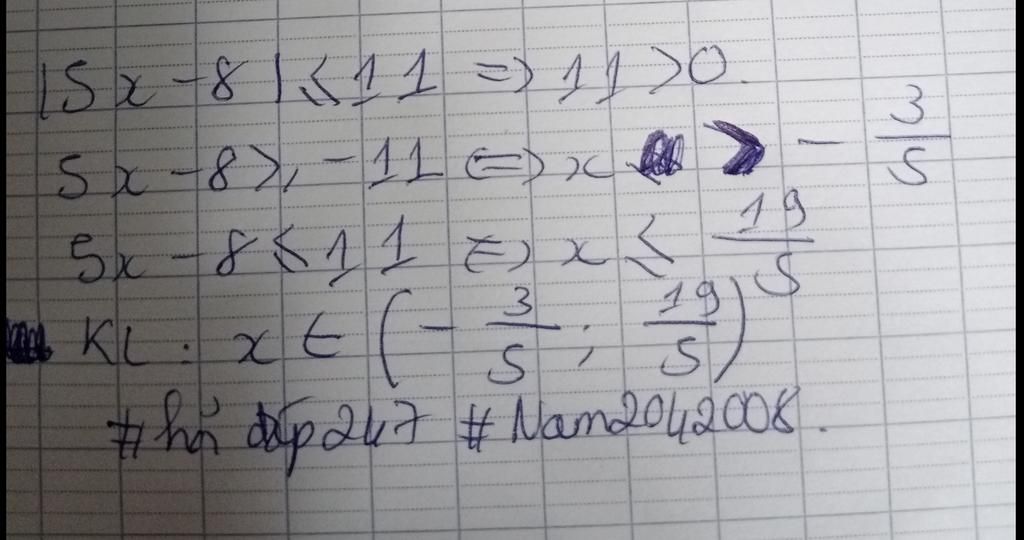 |5x - 8| ≤ 11 => 11 > 0.
5x - 8 ≥ -11 <=> x > - 3/5
5x - 8 ≤ 11 <=> x ≤ 19/5
KL: x ∈ (- 3/5 ; 19/5)
#hỏi đáp247 #Nam2042008.